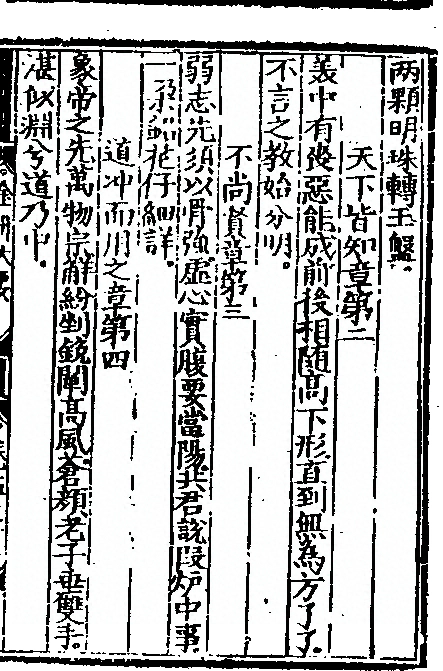 两顆明珠轉玉盤。
天下皆知章第二
美中有後惡能成前後相隨高下形直到無為方了了。
不言之教始分明。
不尚賢章第三
弱志先須以骨強虛心實腹要當陽共君說段炉中事
一朵鉛花仔細詳。
道冲而用之章第四
象帝之先萬物宗解紛剉銳闡高風蒼顔老子垂雙手。
湛似淵兮道乃中。